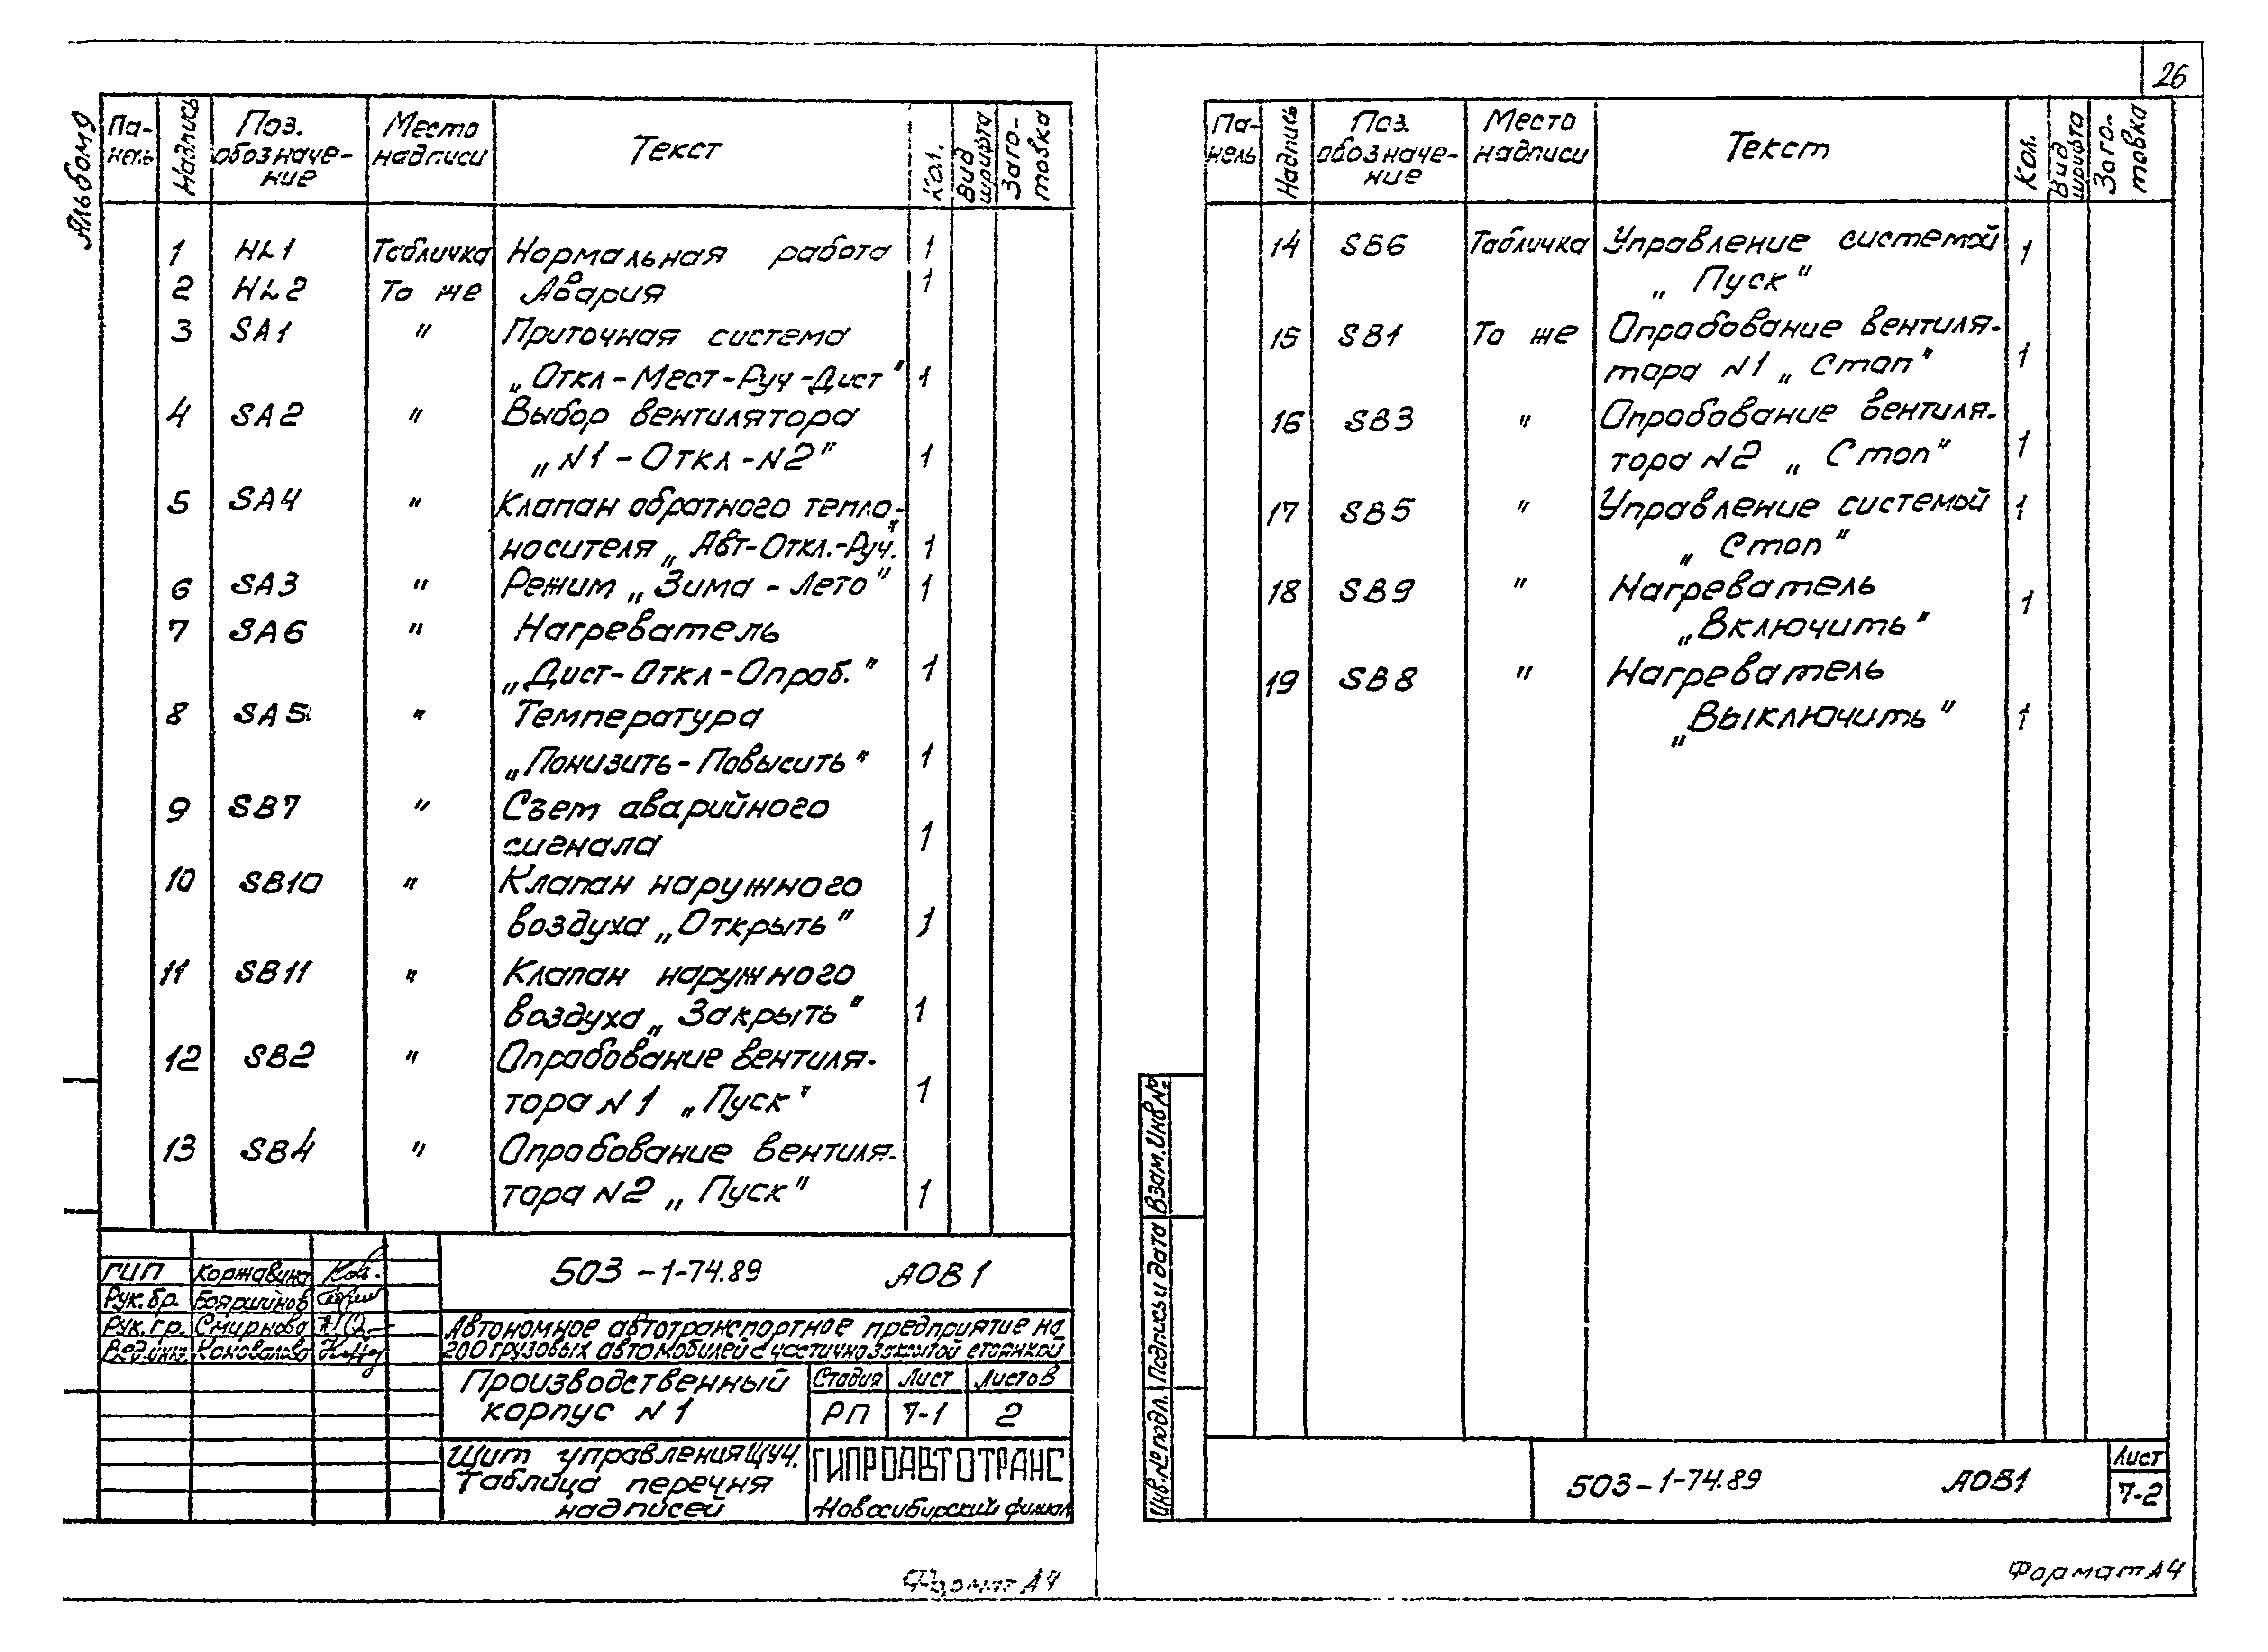 26
Альбом 9
Па-нель | Надпись | Поз. обозначе-ние | Место надписи | Текст | Кол. | Вид шрифта | Заго-товка
1 HL1 Табличка Нормальная работа 1
2 HL2 То же Авария 1
3 SA1 " Приточная система
„Откл-Мест-Руч-Дист" 1
4 SA2 " Выбор вентилятора
„N1-Откл-N2" 1
5 SA4 " Клапан обратного тепло-
носителя „Авт-Откл.-Руч." 1
6 SA3 " Режим „Зима - Лето" 1
7 SA6 " Нагреватель
„Дист-Откл-Опроб." 1
8 SA5 " Температура
„Понизить-Повысить" 1
9 SB7 " Съем аварийного
сигнала 1
10 SB10 " Клапан наружного
воздуха „Открыть" 1
11 SB11 " Клапан наружного
воздуха „Закрыть" 1
12 SB2 " Опробование вентиля-
тора N1 „Пуск" 1
13 SB4 " Опробование вентиля-
тора N2 „Пуск" 1
503-1-74.89 АОВ1
ГИП Коржавина
Рук. бр. Бояршинов
Рук. гр. Смирнова
Вед.инж. Коновалова
Автономное автотранспортное предприятие на
200 грузовых автомобилей с частично закрытой стоянкой
Производственный
корпус N1
Стадия Лист Листов
РП 7-1 2
Щит управления ЩУЧ.
Таблица перечня
надписей
ГИПРОАВТОТРАНС
Новосибирский филиал
Формат А4
Па-нель | Надпись | Поз. обозначе-ние | Место надписи | Текст | Кол. | Вид шрифта | Заго-товка
14 SB6 Табличка Управление системой
„Пуск" 1
15 SB1 То же Опробование вентиля-
тора N1 „Стоп" 1
16 SB3 " Опробование вентиля-
тора N2 „Стоп" 1
17 SB5 " Управление системой 1
„Стоп"
18 SB9 " Нагреватель
„Включить" 1
19 SB8 " Нагреватель
„Выключить" 1
Инв.№ подл. Подпись и дата Взам.Инв№
503-1-74.89 АОВ1
Лист
7-2
Формат А4